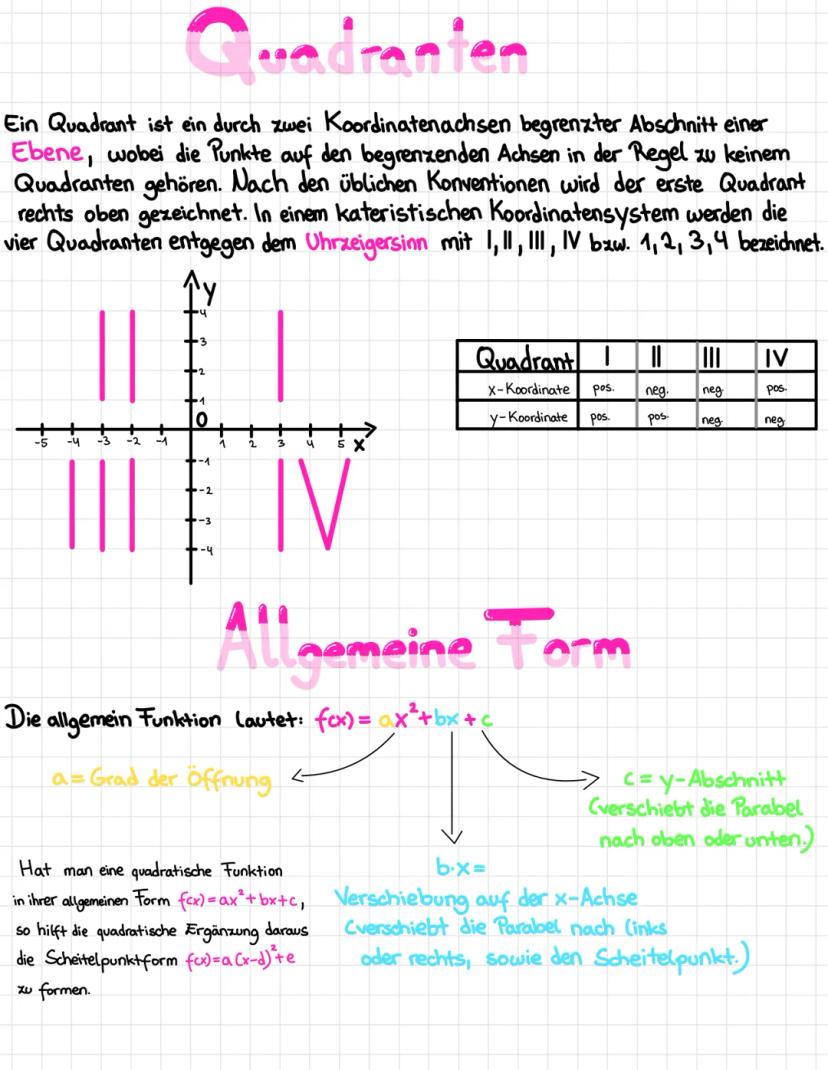 Quadranten
Ein Quadrant ist ein durch zwei Koordinatenachsen begrenzter Abschnitt einer
Ebene, wobei die Punkte auf den begrenzenden Achsen in der Regel zu keinem
Quadranten gehören. Nach den üblichen Konventionen wird der erste Quadrant
rechts oben gezeichnet. In einem kateristischen Koordinatensystem werden die
vier Quadranten entgegen dem Uhrzeigersinn mit I, II, III, IV bzw. 1, 2, 3, 4 bezeichnet.
y
4
3
2
1
0
-5 -4 -3 -2 -1 1 2 3 4 5 x
-1
-2
-3
-4
II I
III IV
Quadrant I II III IV
x-Koordinate pos. neg. neg pos.
y-Koordinate pos. pos. neg neg
Allgemeine Form
Die allgemein Funktion lautet: f(x) = ax²+bx+c
a = Grad der Öffnung
c = y-Abschnitt
(verschiebt die Parabel
nach oben oder unten.)
b·x =
Verschiebung auf der x-Achse
(verschiebt die Parabel nach links
oder rechts, sowie den Scheitelpunkt.)
Hat man eine quadratische Funktion
in ihrer allgemeinen Form f(x)=ax²+bx+c,
so hilft die quadratische Ergänzung daraus
die Scheitelpunktform f(x)=a(x-d)²+e
zu formen.